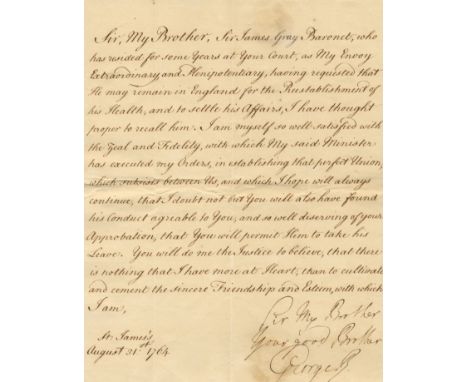 Sir, My Brother, Sir James Gray Baronet, who
has resided for some Years at Your Court, as My Envoy
Extraordinary and Plenipotentiary, having requested that
He may remain in England for the Reestablishment of
his Health, and to settle his Affairs, I have thought
proper to recall him. I am myself so well satisfied with
the Zeal and Fidelity, with which My said Minister
has executed my Orders, in establishing that perfect Union,
which subsists between Us, and which I hope will always
continue, that I doubt not but You will also have found
his Conduct agreable to You, and so well deserving of your
Approbation, that You will permit Him to take his
Leave. You will do me the Justice to believe, that there
is nothing that I have more at Heart, than to cultivate
and cement the sincere Friendship and Esteem, with which
I am,
Sir My Brother
Your good Brother
George R
At James's
August 31st 1764